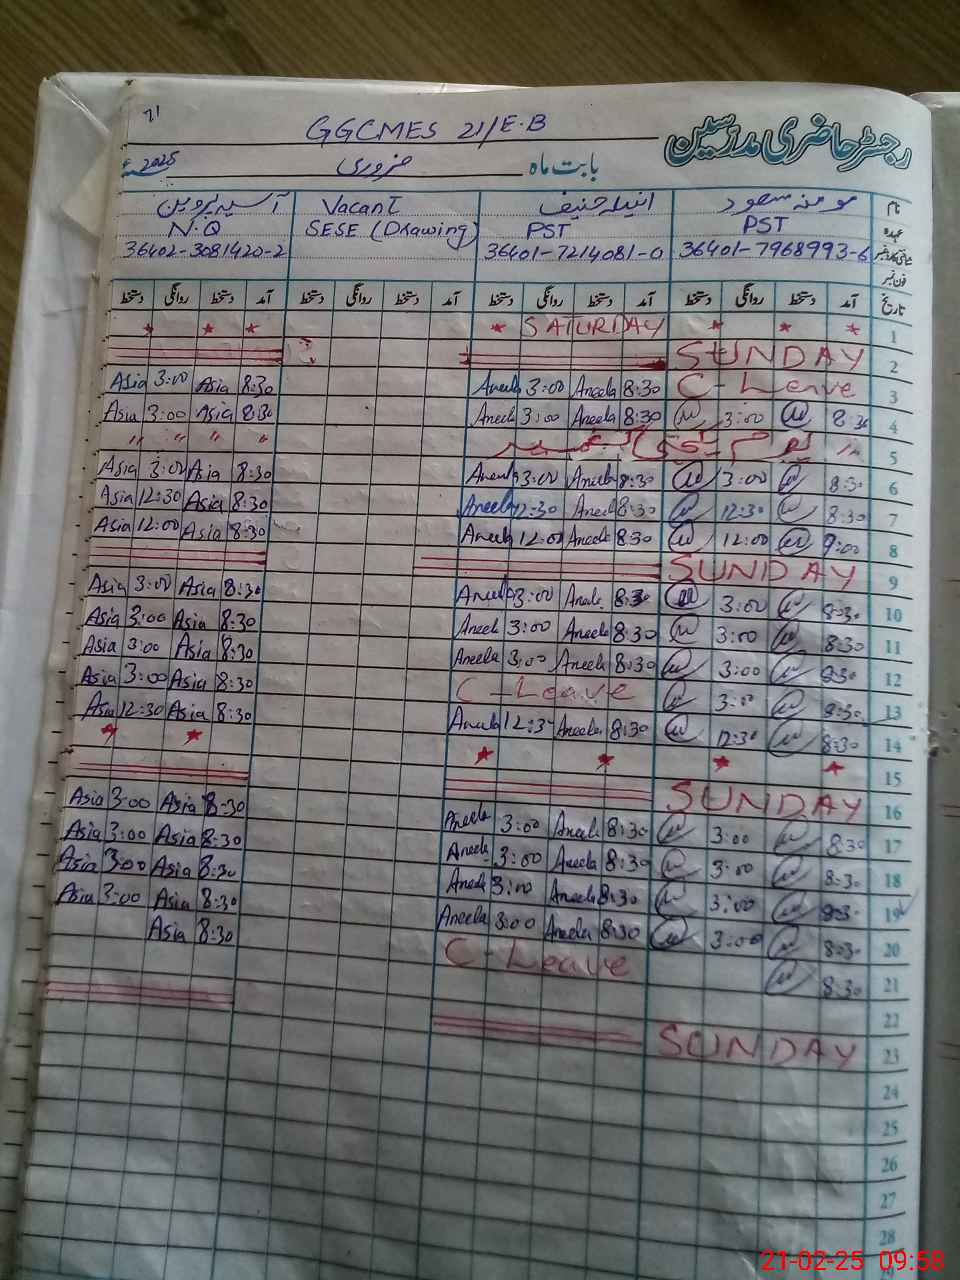 71
GGCMES 21/E.B
رجسٹر حاضری مدرسین
بابت ماہ فروری 2025ء
نام مومنہ مسعود انیلہ حنیف Vacant آسیہ پروین
عہدہ PST PST SESE (Drawing) N.Q
شناختی کارڈ نمبر 36401-7968993-6 36401-7214081-0 36402-3081420-2
فون نمبر
تاریخ آمد دستخط روانگی دستخط آمد دستخط روانگی دستخط آمد دستخط روانگی دستخط آمد دستخط روانگی دستخط
* * * SATURDAY * * * * 1
SUNDAY 2
Asia 3:00 Asia 8:30 Aneela 3:00 Aneela 8:30 C-Leave 3
Asia 3:00 Asia 8:30 Aneela 3:00 Aneela 8:30 3:00 8:30 4
" " " " یوم یکجہتی کشمیر " 5
Asia 3:00 Asia 8:30 Aneela 3:00 Aneela 8:30 3:00 8:30 6
Asia 12:30 Asia 8:30 Aneela 12:30 Aneela 8:30 12:30 8:30 7
Asia 12:00 Asia 8:30 Aneela 12:00 Aneela 8:30 12:00 9:00 8
SUNDAY 9
Asia 3:00 Asia 8:30 Aneela 3:00 Aneela 8:30 3:00 8:30 10
Asia 3:00 Asia 8:30 Aneela 3:00 Aneela 8:30 3:00 8:30 11
Asia 3:00 Asia 8:30 Aneela 3:00 Aneela 8:30 3:00 8:30 12
Asia 3:00 Asia 8:30 C-Leave 3:00 8:30 13
Asia 12:30 Asia 8:30 Aneela 12:3 Aneela 8:30 12:30 8:30 14
* * * * * * 15
SUNDAY 16
Asia 3:00 Asia 8:30 Aneela 3:00 Aneela 8:30 3:00 8:30 17
Asia 3:00 Asia 8:30 Aneela 3:00 Aneela 8:30 3:00 8:30 18
Asia 3:00 Asia 8:30 Aneela 3:00 Aneela 8:30 3:00 8:30 19
Asia 3:00 Asia 8:30 Aneela 3:00 Aneela 8:30 3:00 8:30 20
Asia 8:30 C-Leave 8:30 21
22
SUNDAY 23
24
25
26
27
28
29
21-02-25 09:58